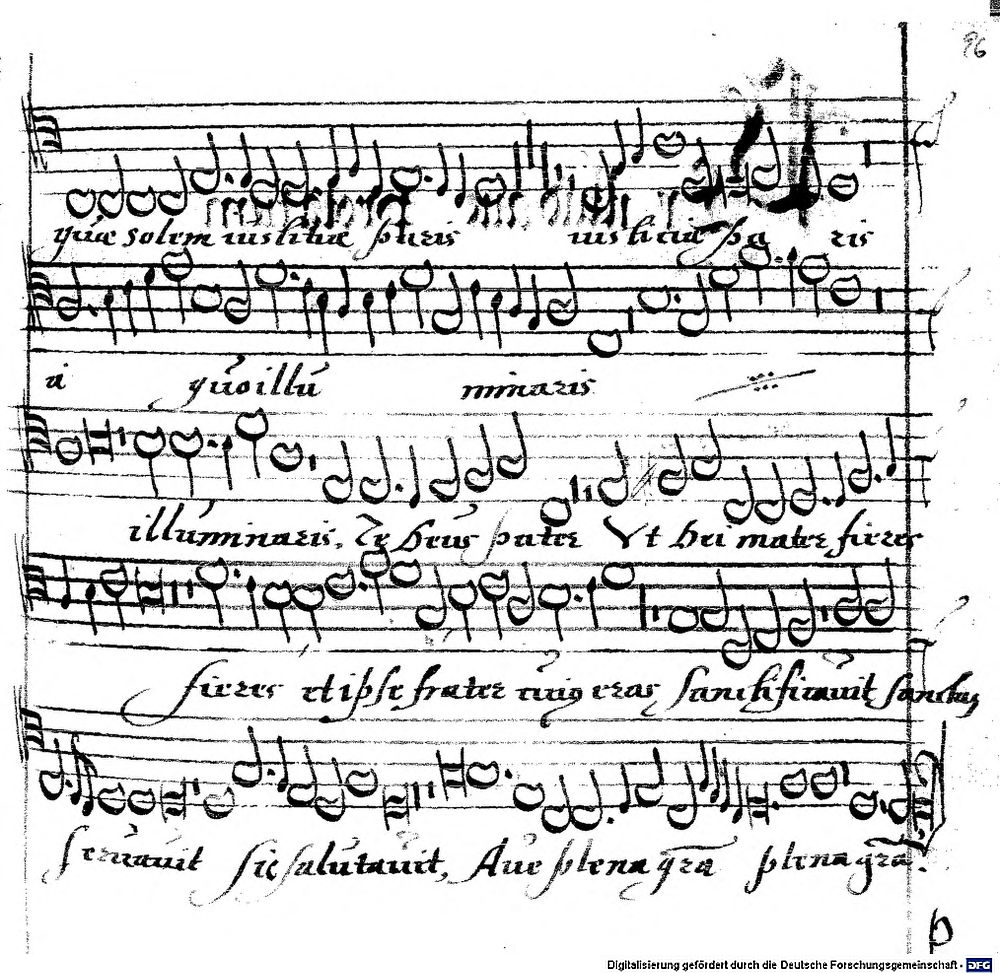 96
quæ solem iustitiæ paris iusticiæ pa ris
a quo illu minaris
illuminaris, Te Deus pater Vt Dei mater fieres
fieres et ipse frater cuius eras sanctificauit sanctus
seruauit sic salutauit, Aue plena gra plena gra.
Digitalisierung gefördert durch die Deutsche Forschungsgemeinschaft - DFG